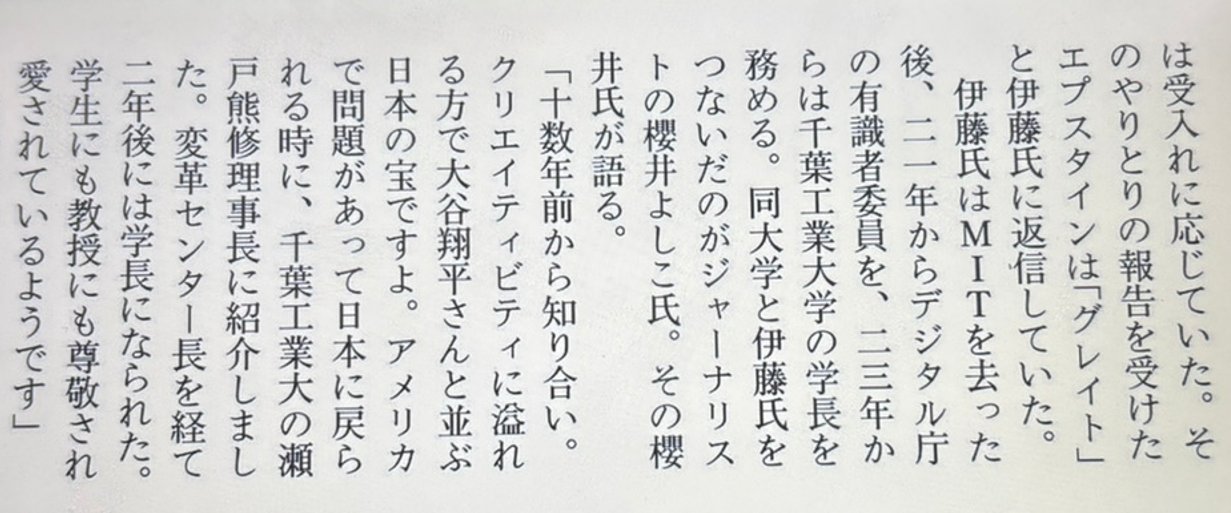 は受入れに応じていた。そ
のやりとりの報告を受けた
エプスタインは「グレイト」
と伊藤氏に返信していた。
伊藤氏はＭＩＴを去った
後、二一年からデジタル庁
の有識者委員を、二三年か
らは千葉工業大学の学長を
務める。同大学と伊藤氏を
つないだのがジャーナリス
トの櫻井よしこ氏。その櫻
井氏が語る。
「十数年前から知り合い。
クリエイティビティに溢れ
る方で大谷翔平さんと並ぶ
日本の宝ですよ。アメリカ
で問題があって日本に戻ら
れる時に、千葉工業大の瀬
戸熊修理事長に紹介しまし
た。変革センター長を経て
二年後には学長になられた。
学生にも教授にも尊敬され
愛されているようです」